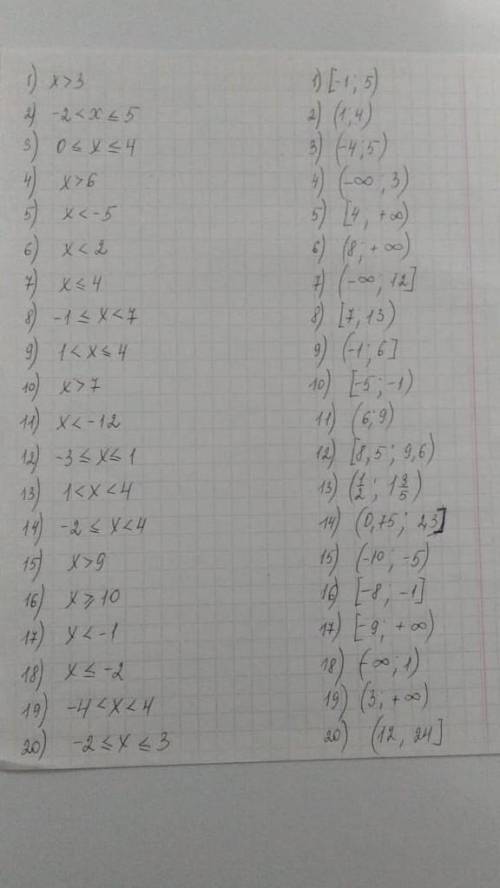 1) x>3
2) -2<x≤5
3) 0≤x≤4
4) x>6
5) x<-5
6) x<2
7) x≤4
8) -1≤x<7
9) 1<x≤4
10) x>7
11) x<-12
12) -3≤x≤1
13) 1<x<4
14) -2≤x<4
15) x>9
16) x⩾10
17) x<-1
18) x≤-2
19) -4<x<4
20) -2≤x≤3
1) [-1; 5)
2) (1;4)
3) (-4;5)
4) (-∞; 3)
5) [4, +∞)
6) (8; +∞)
7) (-∞; 12]
8) [7; 13)
9) (-1; 6]
10) [-5; -1)
11) (6; 9)
12) [8,5; 9,6)
13) (1/2; 1 3/5)
14) (0,75; 2,3]
15) (-10; -5)
16) [-8; -1]
17) [-9; +∞)
18) (-∞; 1)
19) (3; +∞)
20) (12, 24]